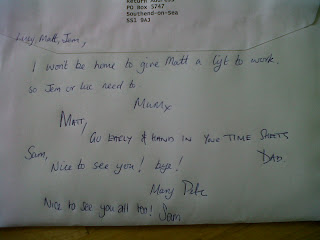 Return Address
PO Box 3747
Southend-on-Sea
SS1 9AJ
Lucy, Matt, Sam,
I won't be home to give Matt a lift to work.
So Jem or Luc need to
Mum x
Matt,
Go early & hand in your time sheets
Dad.
Sam,
Nice to see you! bye!
Mary Pete
Nice to see you all too! Sam